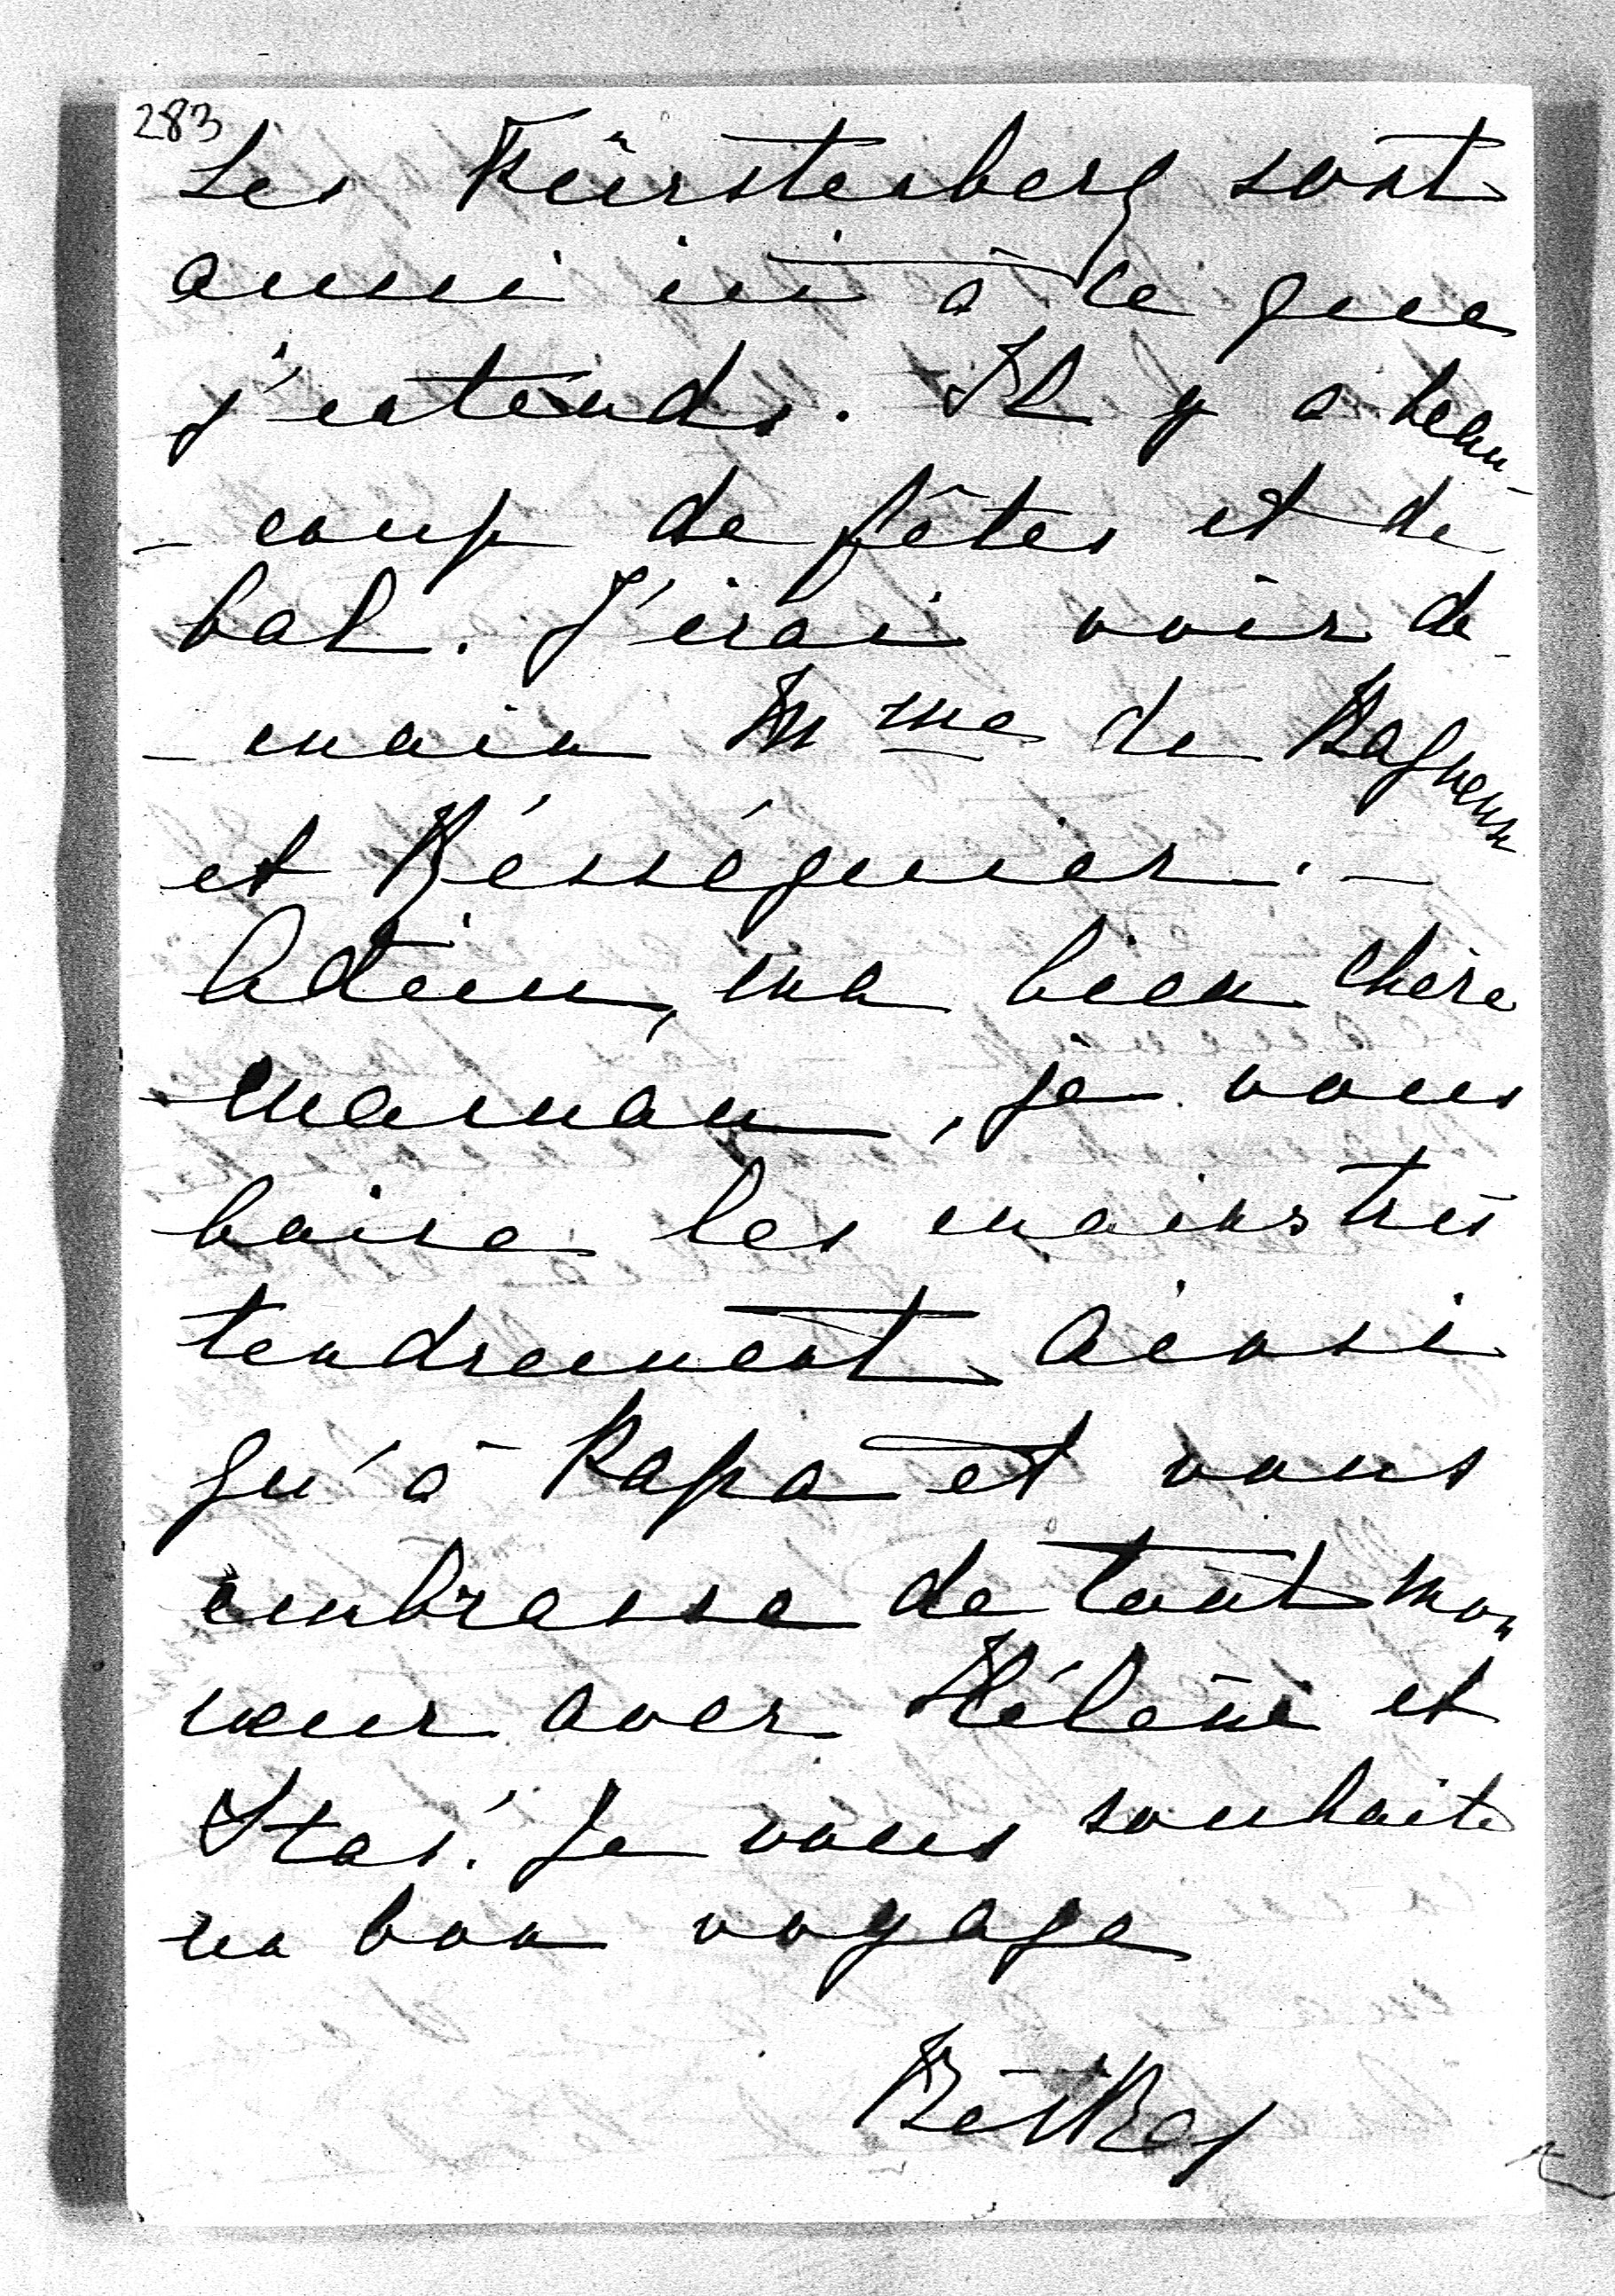 283
Les Fürstenberg sont
aussi ici à ce que
j'entends. Il y a beau-
- coup de fêtes et de
bal. J'irai voir de-
- main Mme de Bagneux
et Rességuier. -
Adieu, ma bien chère
maman, je vous
baise les mains très
tendrement ainsi
qu'à Papa et vous
embrasse de tout mon
cœur avec Hélène et
Stas. Je vous souhaite
un bon voyage